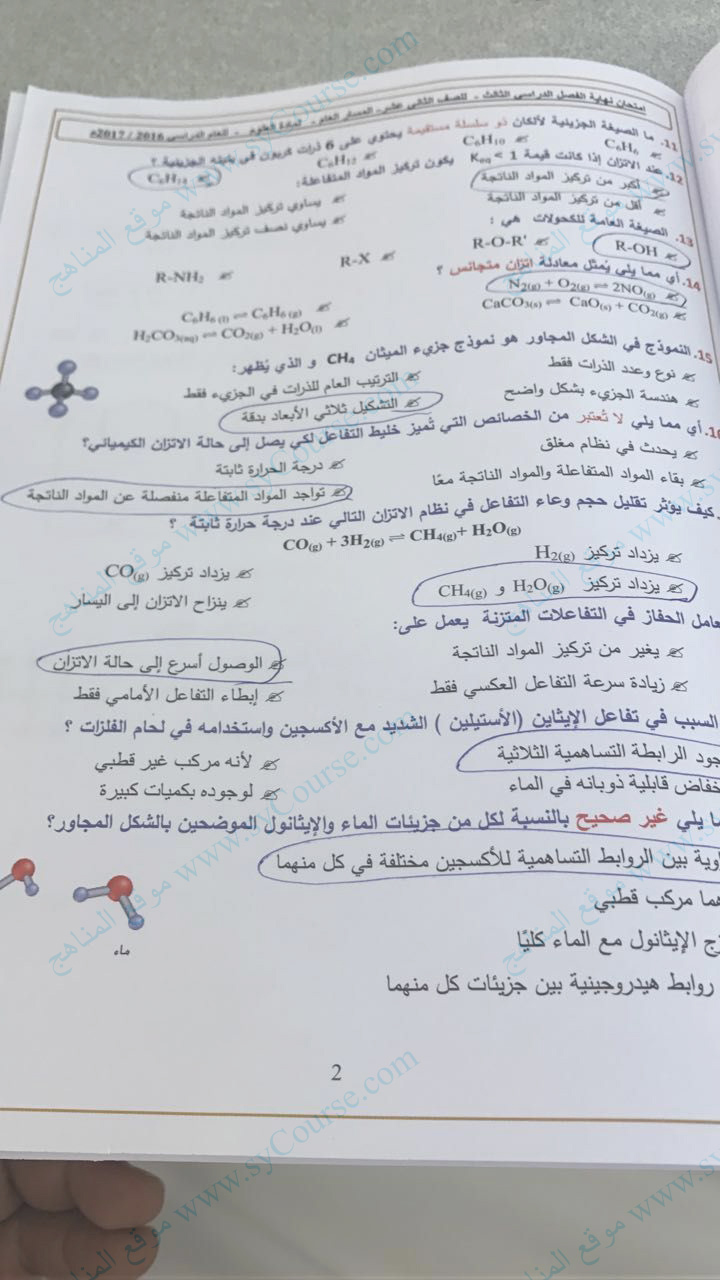 امتحان نهاية الفصل الدراسي الثالث - للصف الثاني عشر - المسار العام - لمادة العلوم - للعام الدراسي 2016 / 2017م
11. ما الصيغة الجزيئية لألكان ذو سلسلة مستقيمة يحتوي على 6 ذرات كربون في بنيته الجزيئية ؟
C₆H₆
C₆H₁₀
C₆H₁₂
C₆H₁₄
12. عند الاتزان إذا كانت قيمة Keq < 1 يكون تركيز المواد المتفاعلة:
أكبر من تركيز المواد الناتجة
يساوي تركيز المواد الناتجة
أقل من تركيز المواد الناتجة
يساوي نصف تركيز المواد الناتجة
13. الصيغة العامة للكحولات هي :
R-OH
R-O-R'
R-X
R-NH₂
14. أي مما يلي يُمثل معادلة اتزان متجانس ؟
N₂(g) + O₂(g) ⇌ 2NO(g)
C₆H₆ (l) ⇌ C₆H₆ (g)
CaCO₃(s) ⇌ CaO(s) + CO₂(g)
H₂CO₃(aq) ⇌ CO₂(g) + H₂O(l)
15. النموذج في الشكل المجاور هو نموذج جزيء الميثان CH₄ و الذي يُظهر:
نوع وعدد الذرات فقط
الترتيب العام للذرات في الجزيء فقط
هندسة الجزيء بشكل واضح
التشكيل ثلاثي الأبعاد بدقة
أي مما يلي لا تُعتبر من الخصائص التي تُميز خليط التفاعل لكي يصل إلى حالة الاتزان الكيميائي؟
يحدث في نظام مغلق
درجة الحرارة ثابتة
بقاء المواد المتفاعلة والمواد الناتجة معًا
تواجد المواد المتفاعلة منفصلة عن المواد الناتجة
كيف يؤثر تقليل حجم وعاء التفاعل في نظام الاتزان التالي عند درجة حرارة ثابتة ؟
CO(g) + 3H₂(g) ⇌ CH₄(g) + H₂O(g)
يزداد تركيز H₂(g)
يزداد تركيز CO(g)
يزداد تركيز H₂O(g) و CH₄(g)
ينزاح الاتزان إلى اليسار
الحفاز في التفاعلات المتزنة يعمل على:
يغير من تركيز المواد الناتجة
الوصول أسرع إلى حالة الاتزان
زيادة سرعة التفاعل العكسي فقط
إبطاء التفاعل الأمامي فقط
السبب في تفاعل الإيثاين (الأستيلين ) الشديد مع الأكسجين واستخدامه في لحام الفلزات ؟
الرابطة التساهمية الثلاثية
لأنه مركب غير قطبي
قابلية ذوبانه في الماء
لوجوده بكميات كبيرة
يلي غير صحيح بالنسبة لكل من جزيئات الماء والإيثانول الموضحين بالشكل المجاور؟
بين الروابط التساهمية للأكسجين مختلفة في كل منهما
مركب قطبي
الإيثانول مع الماء كليًا
روابط هيدروجينية بين جزيئات كل منهما
ماء
2
موقع المناهج www.syCourse.com